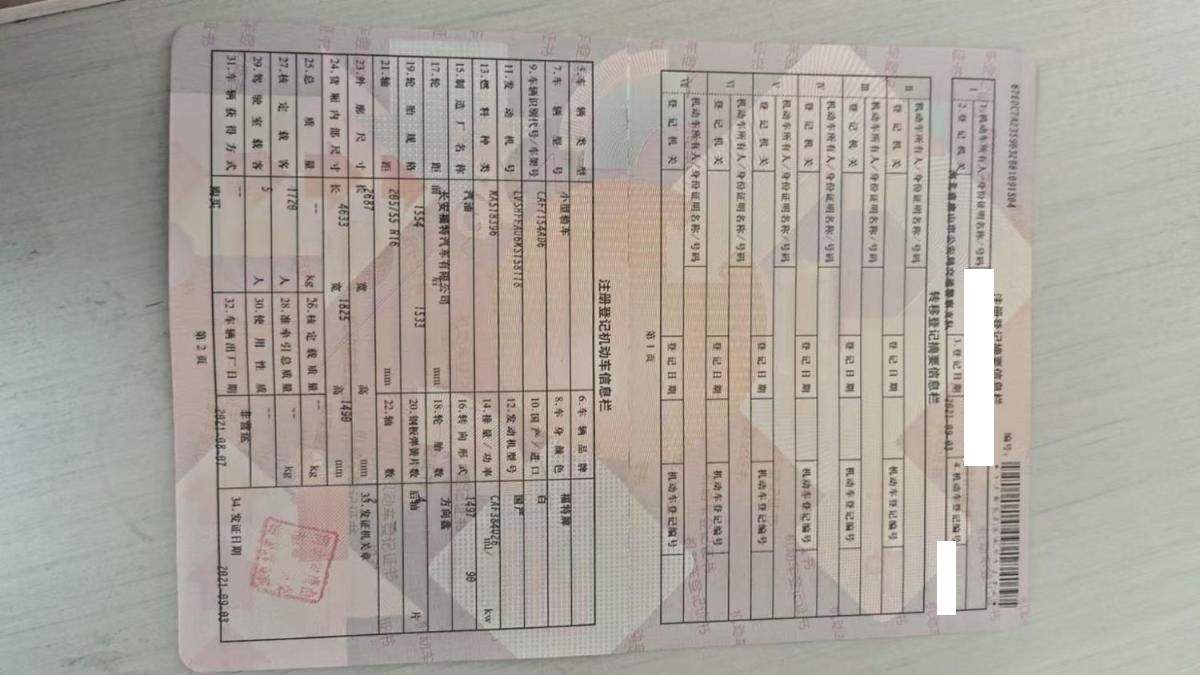 67E0C7A2359032081091504
注册登记摘要信息栏
编号:
Ⅰ 1.机动车所有人/身份证明名称/号码
2.登记机关 河北省唐山市公安局交通警察支队 3.登记日期 2021-09-03 4.机动车登记编号
转移登记摘要信息栏
Ⅱ 机动车所有人/身份证明名称/号码
登记机关 登记日期 机动车登记编号
Ⅲ 机动车所有人/身份证明名称/号码
登记机关 登记日期 机动车登记编号
Ⅳ 机动车所有人/身份证明名称/号码
登记机关 登记日期 机动车登记编号
Ⅴ 机动车所有人/身份证明名称/号码
登记机关 登记日期 机动车登记编号
Ⅵ 机动车所有人/身份证明名称/号码
登记机关 登记日期 机动车登记编号
Ⅶ 机动车所有人/身份证明名称/号码
登记机关 登记日期 机动车登记编号
第 1 页
注册登记机动车信息栏
5.车辆类型 小型轿车 6.车辆品牌 福特牌
7.车辆型号 CAF7154AD6 8.车身颜色 白
9.车辆识别代号/车架号 10.国产/进口 国产
11.发动机号 12.发动机型号
13.燃料种类 汽油 14.排量/功率 1497 ml/ 90 kw
15.制造厂名称 长安福特汽车有限公司 16.转向形式 方向盘
17.轮距 前 1554 后 1533 mm 18.轮胎数 4
19.轮胎规格 205/55 R16 20.钢板弹簧片数 后轴 片
21.轴距 2687 mm 22.轴数
23.外廓尺寸 长 4633 宽 1825 高 1490 mm 33.发证机关章
24.货厢内部尺寸 长 宽 高 mm
25.总质量 1720 kg 26.核定载质量 -- kg
27.核定载客 5 人 28.准牵引总质量 -- kg
29.驾驶室载客 -- 人 30.使用性质 非营运
31.车辆获得方式 购买 32.车辆出厂日期 2021-08-07 34.发证日期 2021-09-03
第 2 页